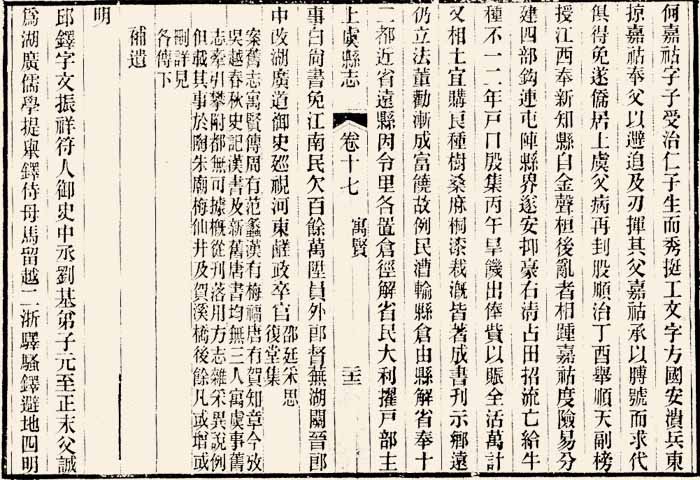 何嘉祜字子受治仁子生而秀挺工文字方國安潰兵東
掠嘉祜奉父以避追及刃揮其父嘉祜承以膊號而求代
俱得免遂僑居上虞父病再刲股順治丁酉舉順天副榜
授江西奉新知縣自金聲桓後亂者相踵嘉祜度險易分
建四部鈎連屯陣縣界逐安抑豪右清占田招流亡給牛
種不一二年戸口殷集丙午旱饑出俸貲以賑全活萬計
又相土宜購良種樹桑麻桐漆栽漑皆著成書刊示鄉遠
仍立法董勸漸成富饒故例民漕輸縣倉由縣解省奉十
二都近省遠縣因令里各置倉徑解省民大利擢戸部主
上虞縣志
卷十七
寓賢
三三
事白尚書免江南民欠百餘萬陞員外郎督蕪湖關晉郎
中改湖廣道御史廵視河東鹺政卒官
邵廷采思
復堂集
案舊志寓賢傳周有范蠡漢有梅福唐有賀知章今攷
吳越春秋史記漢書及新舊唐書均無三人寓虞事舊
志牽引攀附都無可據槪從刊落用方志雜采異說例
但載其事於陶朱廟梅仙井及賀溪橋後餘凡或增或
刪詳見
各傳下
補遺
明
邱鐸字文振祥符人御史中丞劉基弟子元至正末父誠
爲湖廣儒學提舉鐸侍母馬留越二浙驛騷鐸避地四明